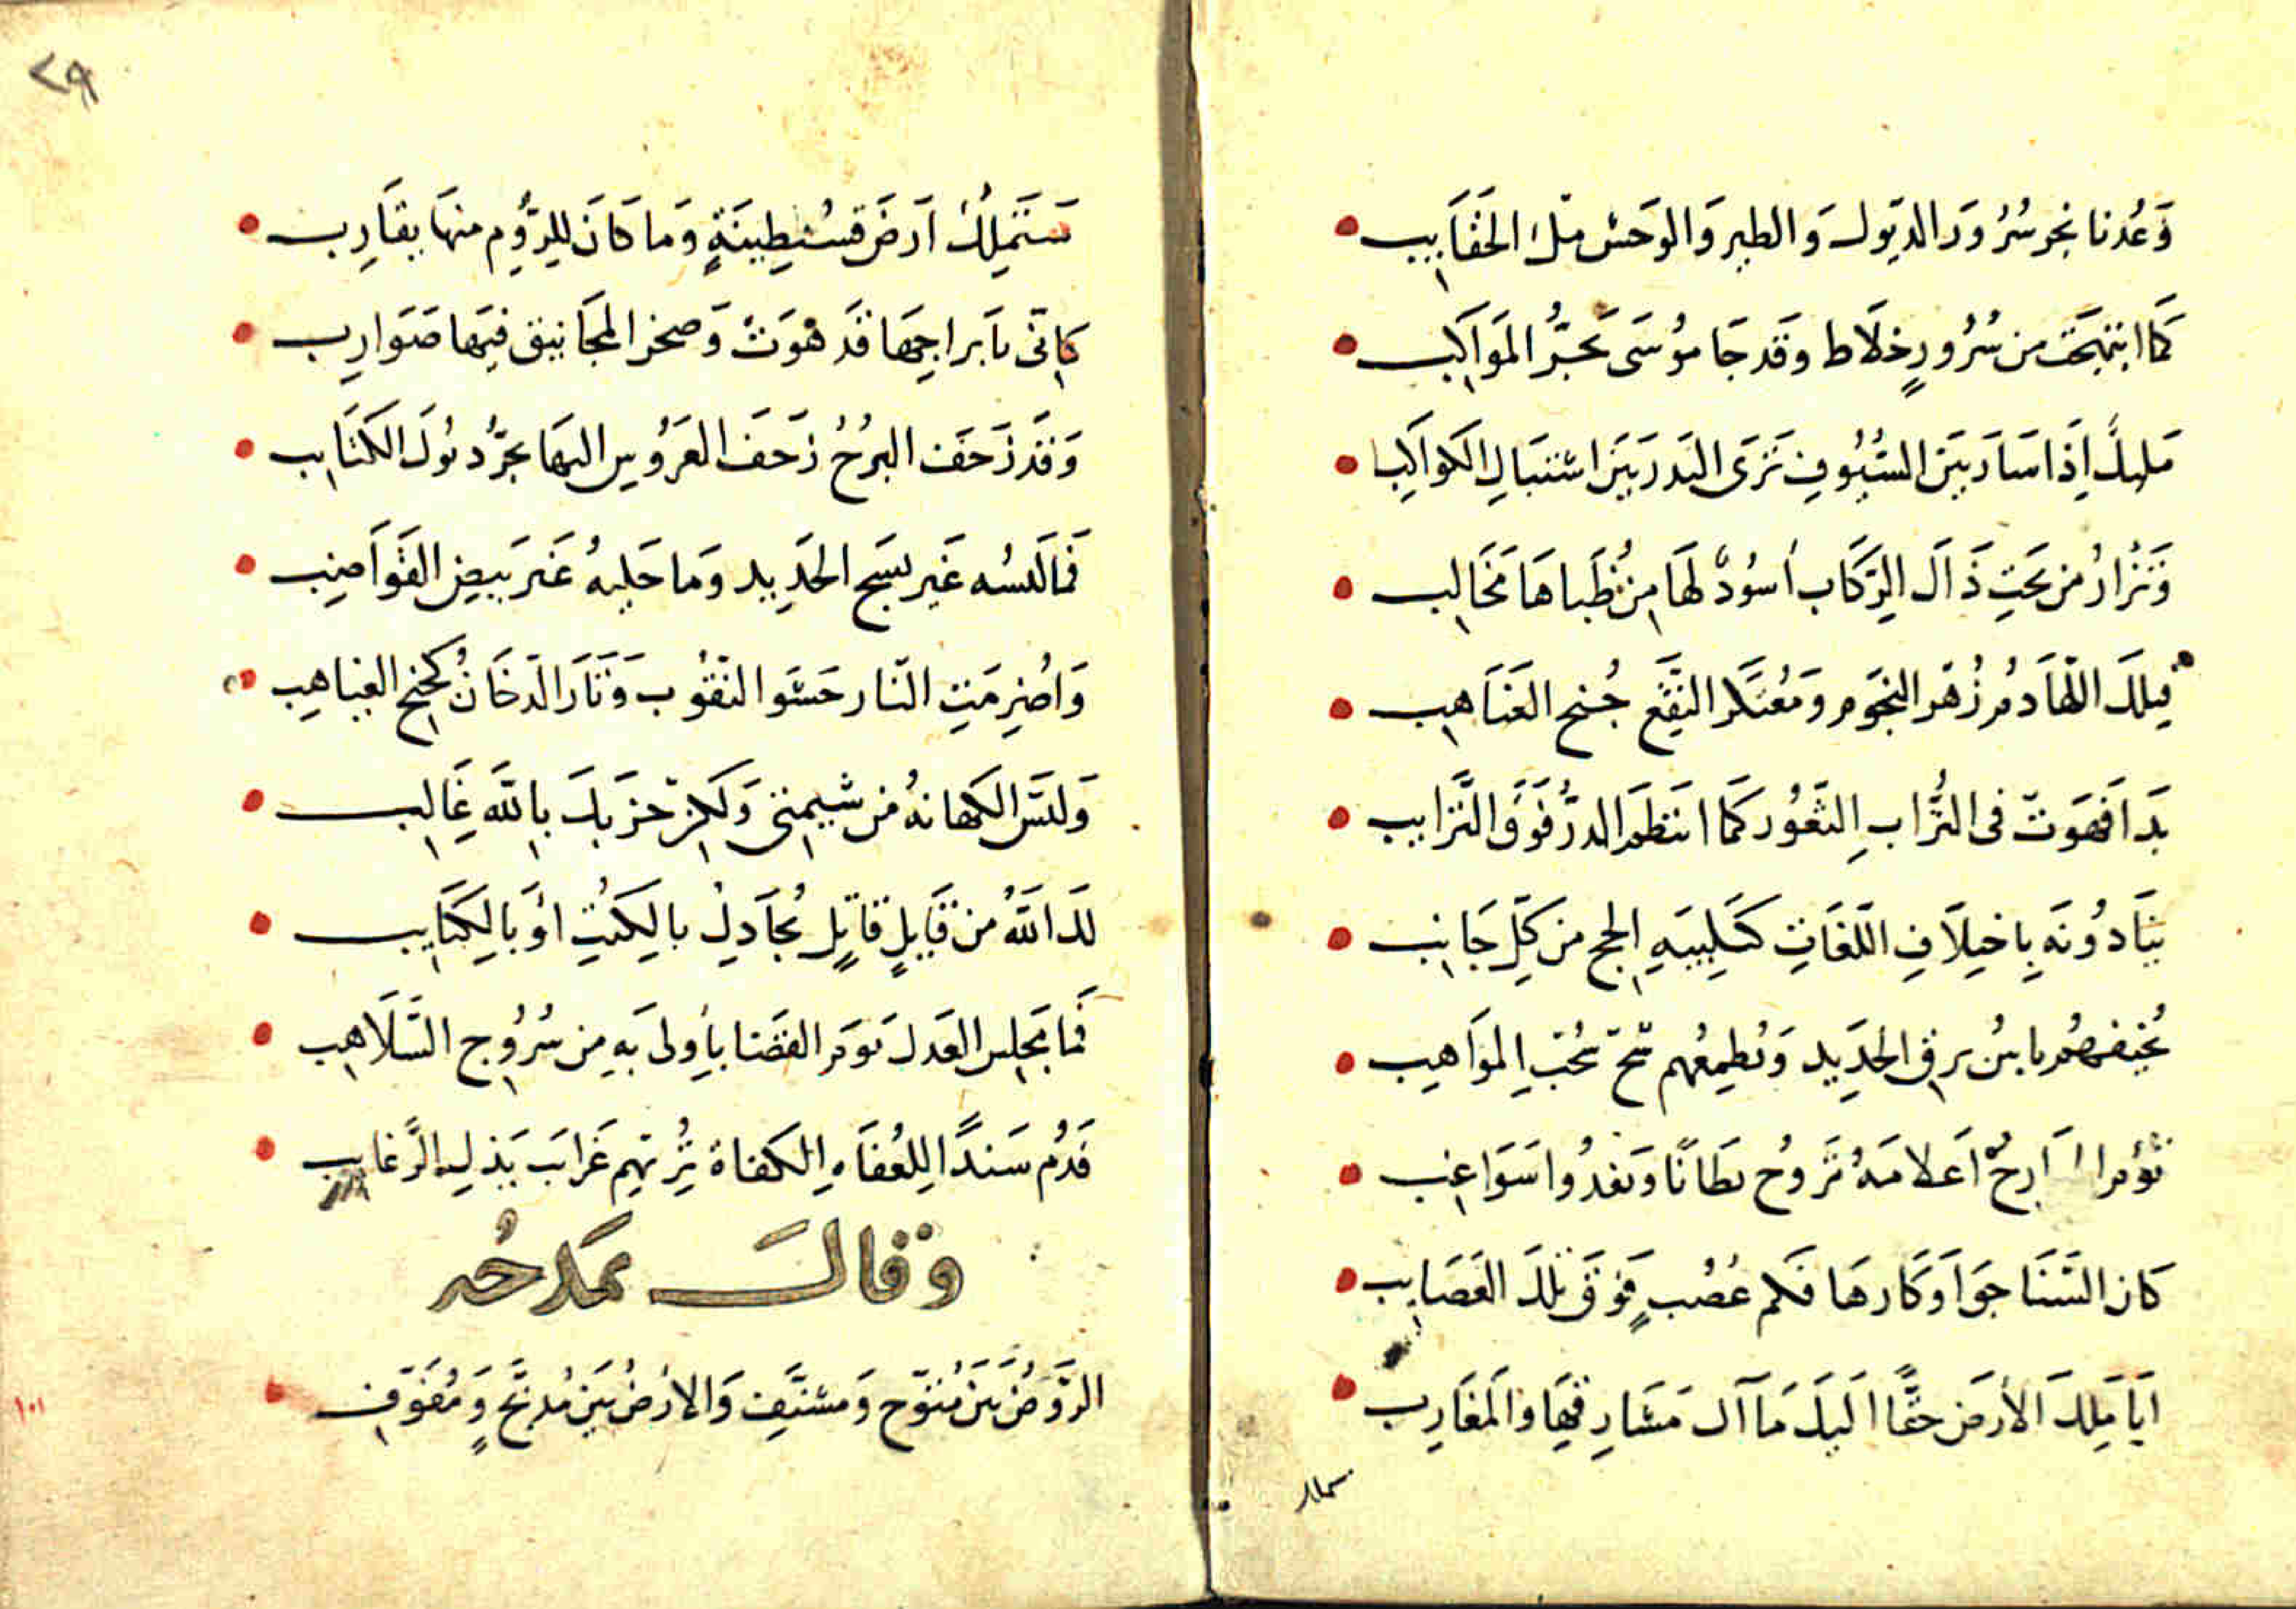 وَعُدنا نجر سُرُورَ الديول وَالطير وَالوَحش ملَ الحَقَايب
كَما ابتهجَت من سُرُورٍ خلَاط وقَد جَا موُسَى يَجُرُّ المَوَاكِب
مَليكً اِذَا سَارَ بَين السُيُوفِ تَرَى البَدرَ بَين اشتبَالِ الكَواكِب
وَتزارُ من تَحتِ ذَاَل الرِّكَاب أسُودٌ لهَا مِن ظُبَاهَا مَخَالِب
فيلكَ اللهَادم زُهر النجَوم وَمُعتَكر النَقَع جُنح الغَيَاهِب
بَدَا فهَوَت فى التُرَّابِ الثَغوُر كَمَا انتَظَم الدرُّ فَوقَ التَرَايب
يُنَادُونَه بِاختِلَافِ اللَغَاتِ كَتَلبِيَهِ الحج من كلِّ جَانِب
يُخيفهُم بَاسُ برق الحَدِيد وَتُطِمعُهم سَحّ سُحبِ المَوَاهِب
تَؤم ارحٌ اَعلامَهُ تَروُح بطَانًا وَتغدُوا سَوَاغِب
كَان السَنَا جَوَ اَوكَارهَا فكَم عُصُبٍ فَوقَ تلكَ العَصَايب
اَيَا مَلِكَ الأرَض حَقًّا اليكَ مَآل مَشَارِقِهَا وَالمَغَارِب
ستملك
٢٩
سَتَملِكُ اَرضَ قسُنطِيينَةٍ وَمَا كَانَ للرُّومِ منهَا بقَارِب
كاِنّى بَابراجِهَا قَد هَوَتْ وَصخر المجَانيق فيهَا ضَوَارِب
وَقَد زَحَفَ البرُجُ زَحفَ العَرُوسِ اليهَا يجرُّ ديُولَ الكَتَايب
فَما لبسُه غَير نسَج الحَدِيد وَما حَليهُ غَير بَيض القَوَاضِب
وَاُضرِمَتِ النَّار حَشوَ النقوُب وَثَارَ الدَخَانُ كجُنحِ الغياهِب
وَليَسَ الكهَانهُ من شيِمتى وَلكِنّ حزبكَ باللَّه غَالِب
لكَ اللَّهُ من قَايلٍ قَاتِلٍ يُجَادِلُ بالِكتُبِ اَوْ بَالِكتَايب
فَما بمَجلِس العَدل يَومَ القضَا بأَولى بَهِ مِن سُرُوج السَّلَاهِب
فَدُم سَندًا لِلعُفَاهِ الِكفاة يُثرِيهِم غَرايَب بَذلِ الرَّغايب
وَقالَ يمَدحُه
الرَوضُ بَينَ مُتوَّج وَمشنَّفِ وَالارَضُ بَينَ مُدبَّجٍ وَمُفَوَّفِ
١٠١